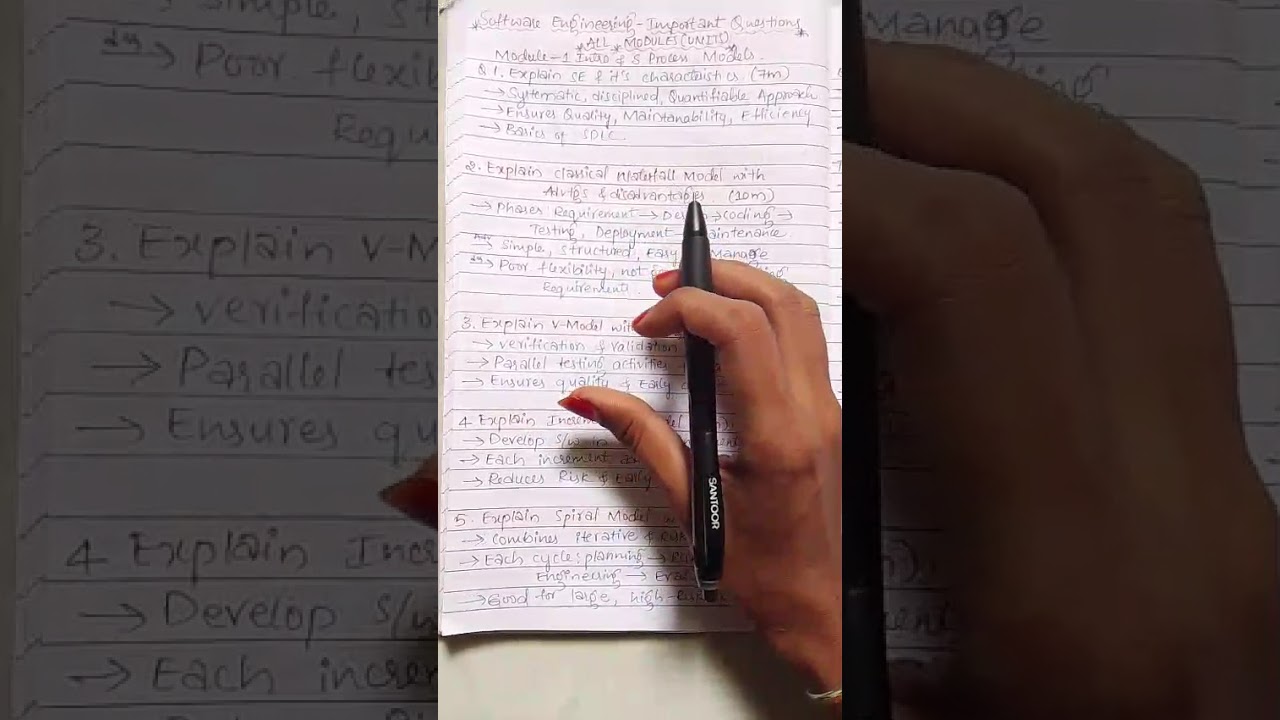 Software Engineering - Important Questions
ALL MODULES (UNITS)
Module-1 Intro & S Process Models.
Q 1. Explain SE & it's characteristics (7m)
→ Systematic, disciplined, Quantifiable Approach
→ Ensures Quality, Maintanability, Efficiency
→ Basics of SDLC
2. Explain classical Waterfall Model with
Advtgs & disadvantages (10m)
→ Phases Requirement → Des → coding →
Testing, Deployment → Maintenance.
→ Simple, structured, Easy Manage
→ Poor flexibility, not
Requirement.
3. Explain V-Model with
→ verification & Validation
→ Parallel testing activities
→ Ensures quality & Early
4 Explain Increm
→ Develop s/w in
→ Each increment
→ Reduces Risk & Early
5. Explain Spiral Model
→ combines iterative & Risk
→ Each cycle: planning →
Engineering →
→ Good for large, high-
SANTOOR